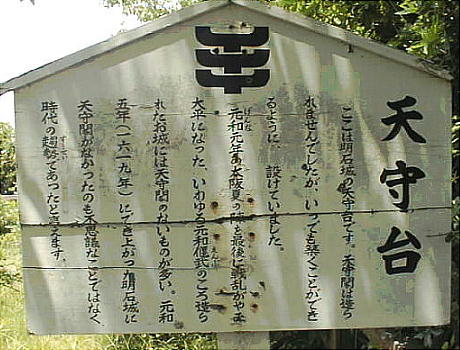 天守台
ここは明石城の天守台です。天守閣は造ら
れませんでしたが、いつでも築くことができ
るように 設けていました。
元和元年の大阪夏の陣を最後に戦乱が
太平になった、いわゆる元和偃武のころ造ら
れたお城には天守閣のないものが多い。元和
五年(一六一九年)にでき上がった明石城に
天守閣がなかったのも不思議なことではなく、
時代の趨勢であったと ます。
げんな
えんぶ
すうせい